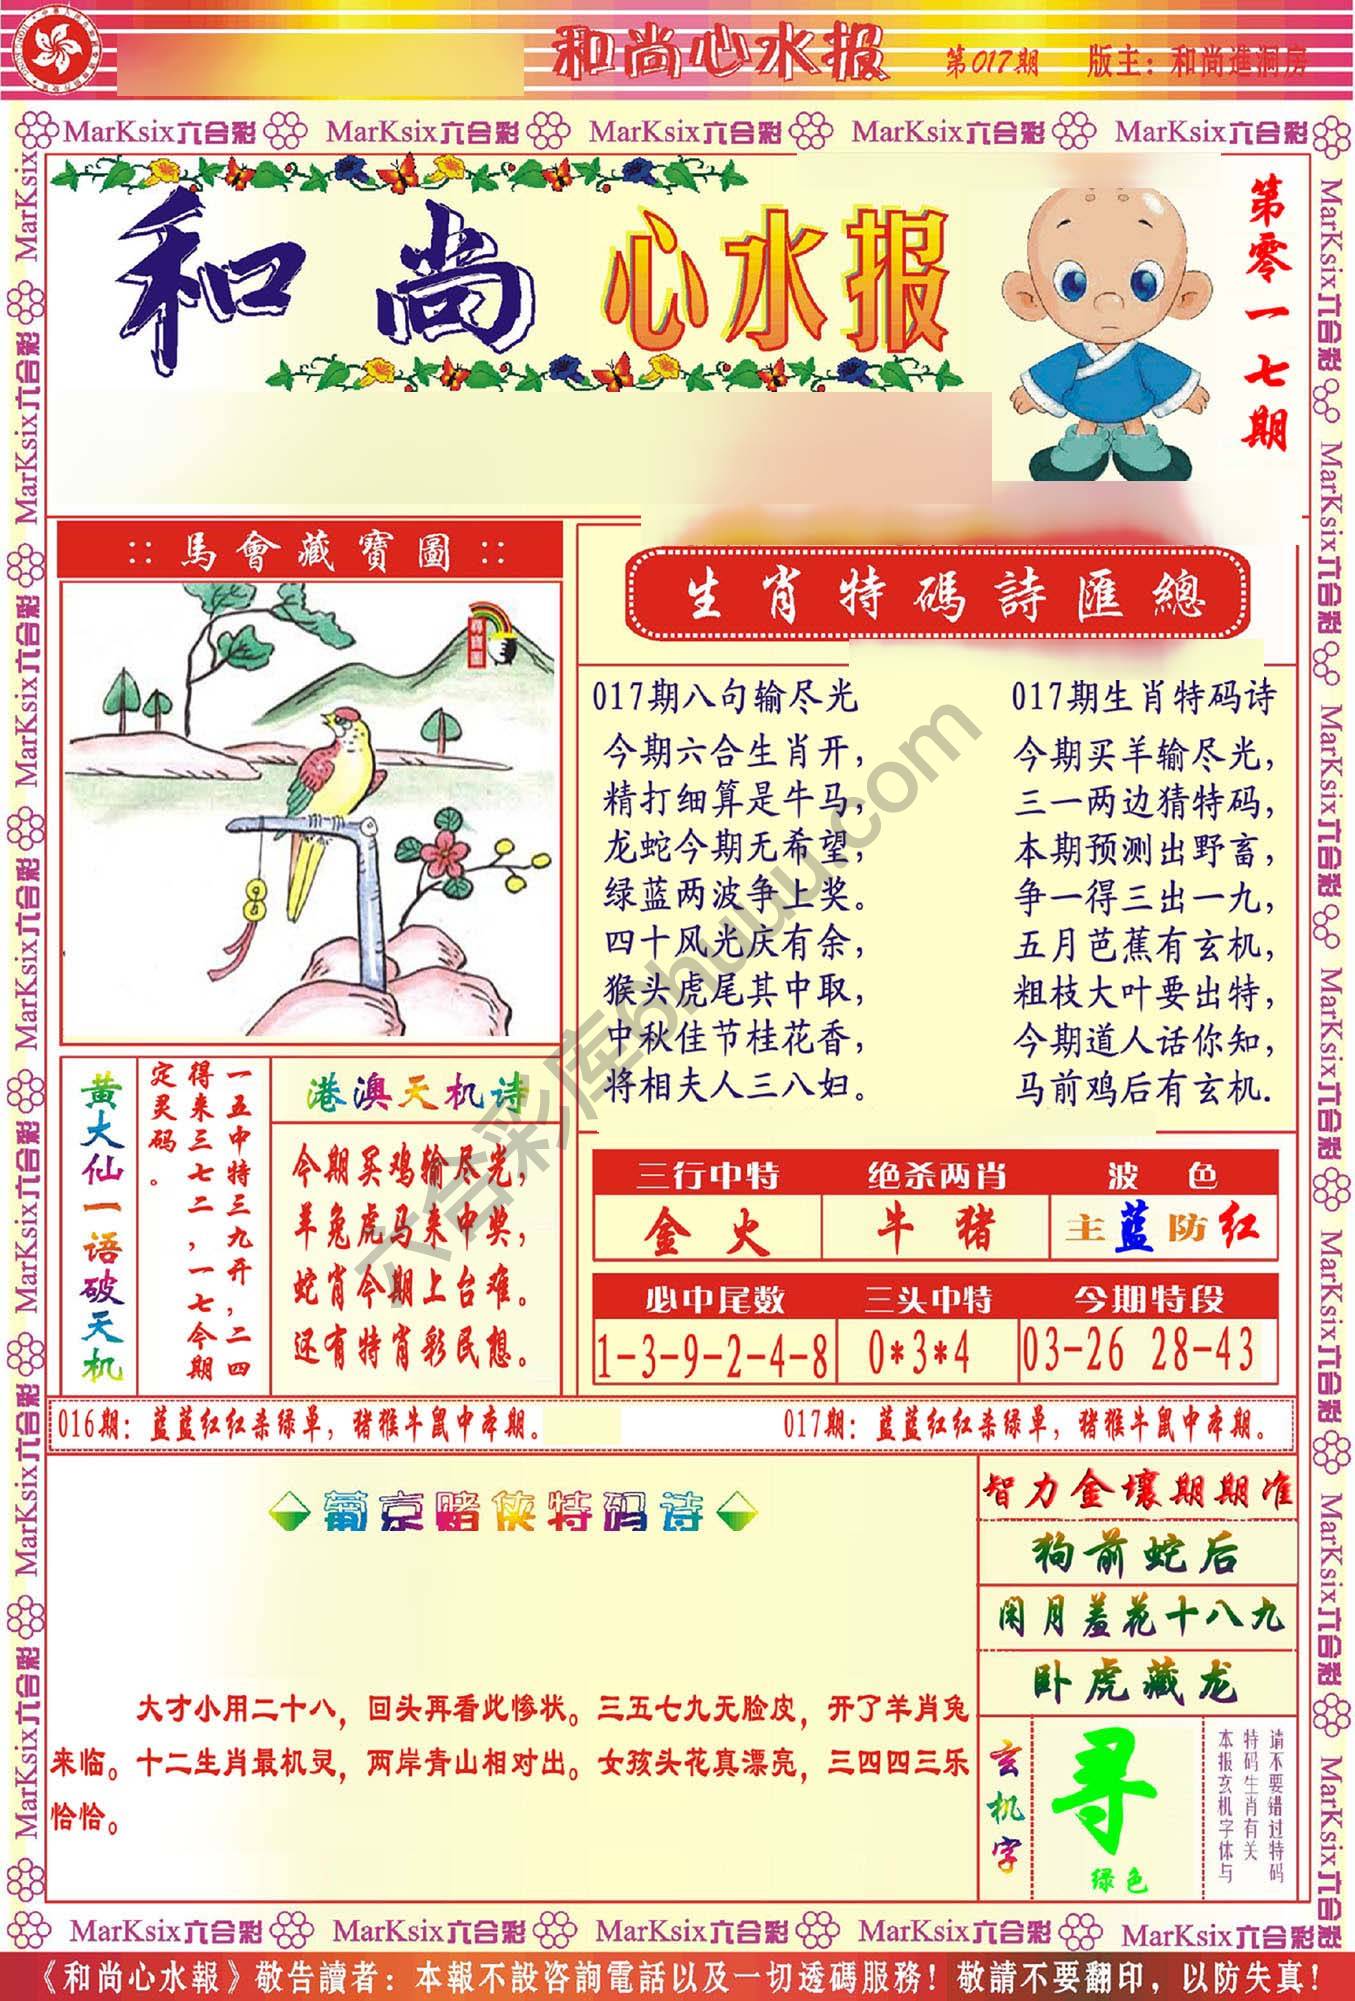 和尚心水报 第017期 版主：和尚進洞房
MarKsix六合彩 MarKsix六合彩 MarKsix六合彩 MarKsix六合彩 MarKsix六合彩
和尚心水报
第零一七期
::馬會藏寶圖::
生肖特碼詩匯總
017期八句输尽光
今期六合生肖开，
精打细算是牛马，
龙蛇今期无希望，
绿蓝两波争上奖。
四十风光庆有余，
猴头虎尾其中取，
中秋佳节桂花香，
将相夫人三八妇。
017期生肖特码诗
今期买羊输尽光，
三一两边猜特码，
本期预测出野畜，
争一得三出一九，
五月芭蕉有玄机，
粗枝大叶要出特，
今期道人话你知，
马前鸡后有玄机.
黄大仙一语破天机
一五中特三九开，二四
得来三七二，一七今期
定灵码。
港澳天机诗
今期买鸡输尽光，
羊兔虎马来中奖，
蛇肖今期上台难。
还有特肖彩民想。
三行中特 绝杀两肖 波色
金火 牛猪 主蓝防红
必中尾数 三头中特 今期特段
1-3-9-2-4-8 0*3*4 03-26 28-43
016期：蓝蓝红红杀绿单，猪猴牛鼠中本期。
017期：蓝蓝红红杀绿单，猪猴牛鼠中本期。
葡京赌侠特码诗
大才小用二十八，回头再看此惨状。三五七九无脸皮，开了羊肖兔
来临。十二生肖最机灵，两岸青山相对出。女孩头花真漂亮，三四四三乐
恰恰。
智力金壤期期准
狗前蛇后
闭月羞花十八九
卧虎藏龙
玄机字
寻
绿色
请不要错过特码
特码生肖有关
本报玄机字体与
六合彩库6huuu.com
MarKsix六合彩 MarKsix六合彩 MarKsix六合彩 MarKsix六合彩 MarKsix六合彩
《和尚心水報》敬告讀者：本報不設咨詢電話以及一切透碼服務！敬請不要翻印，以防失真！